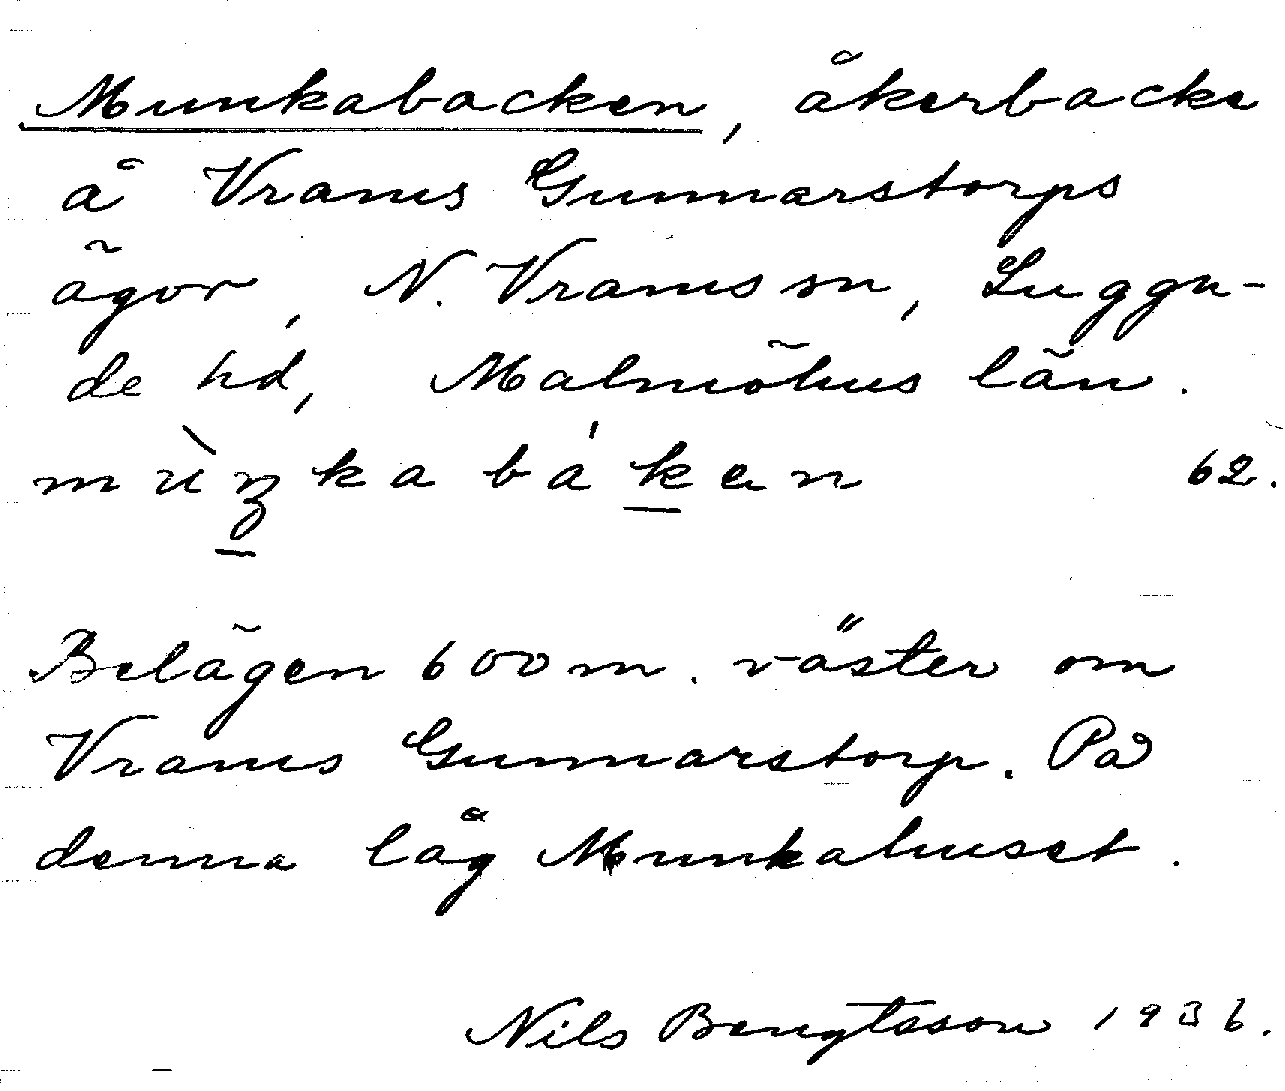 Munkabacken, åkerbacke
å Vrams Gunnarstorps
ägor, N. Vrams sn, Luggu-
de hd, Malmöhus län.
mùŋkabáken 62.
Belägen 600 m. väster om
Vrams Gunnarstorp. På
denna låg Munkahuset.
Nils Bengtsson 1936.